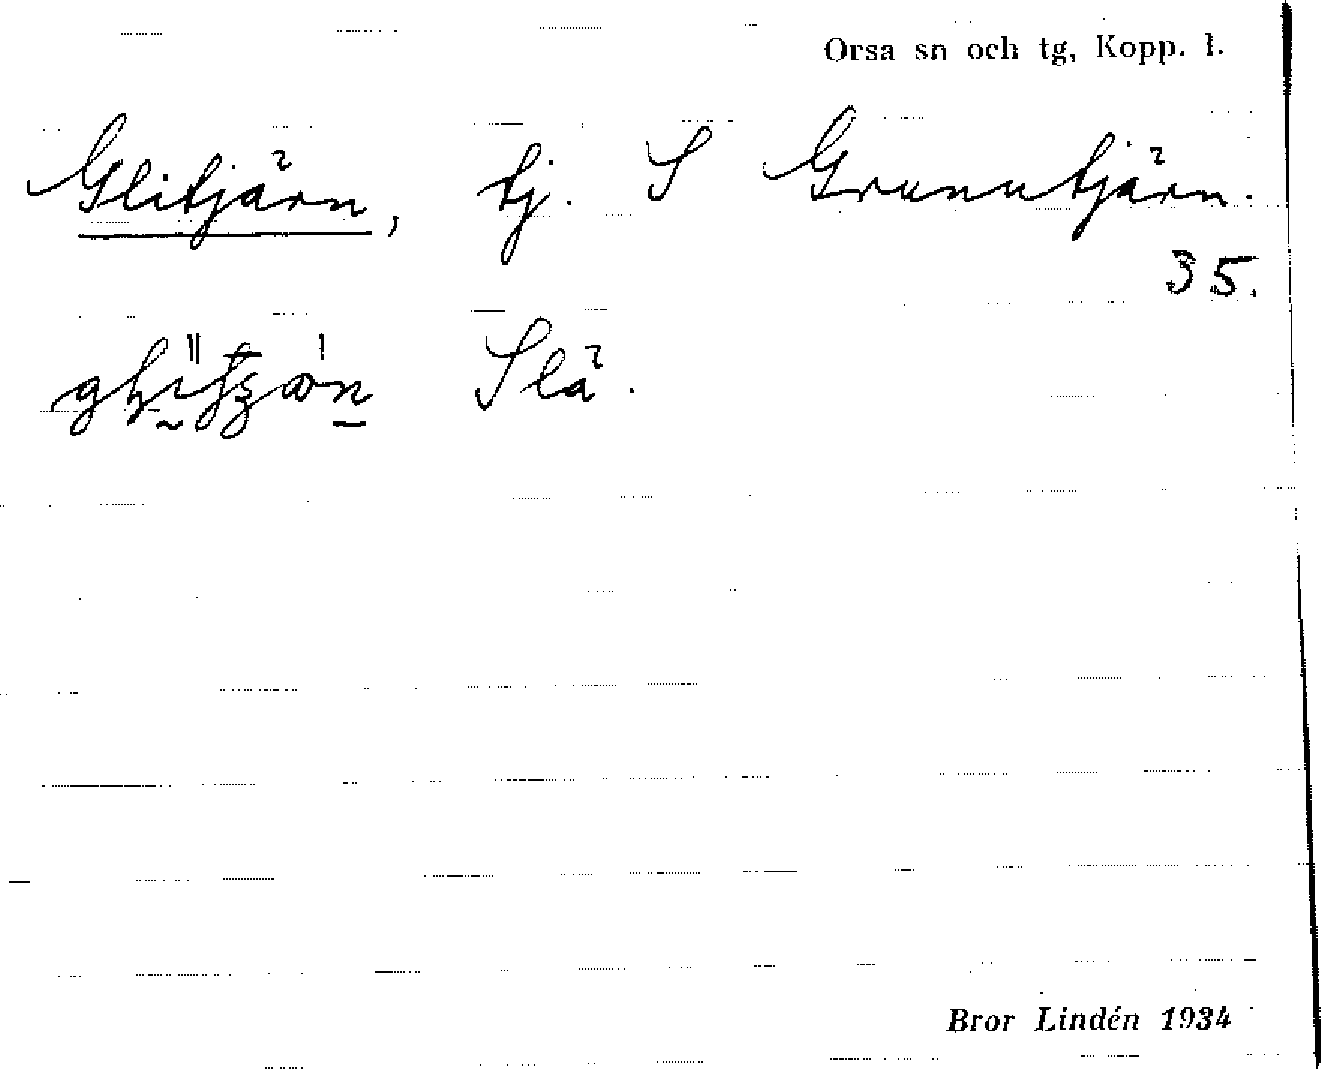 Orsa sn och tg, Kopp. l.
Glitjärn, tj. S Grunntjärn.
35.
Slä.
Bror Lindén 1934